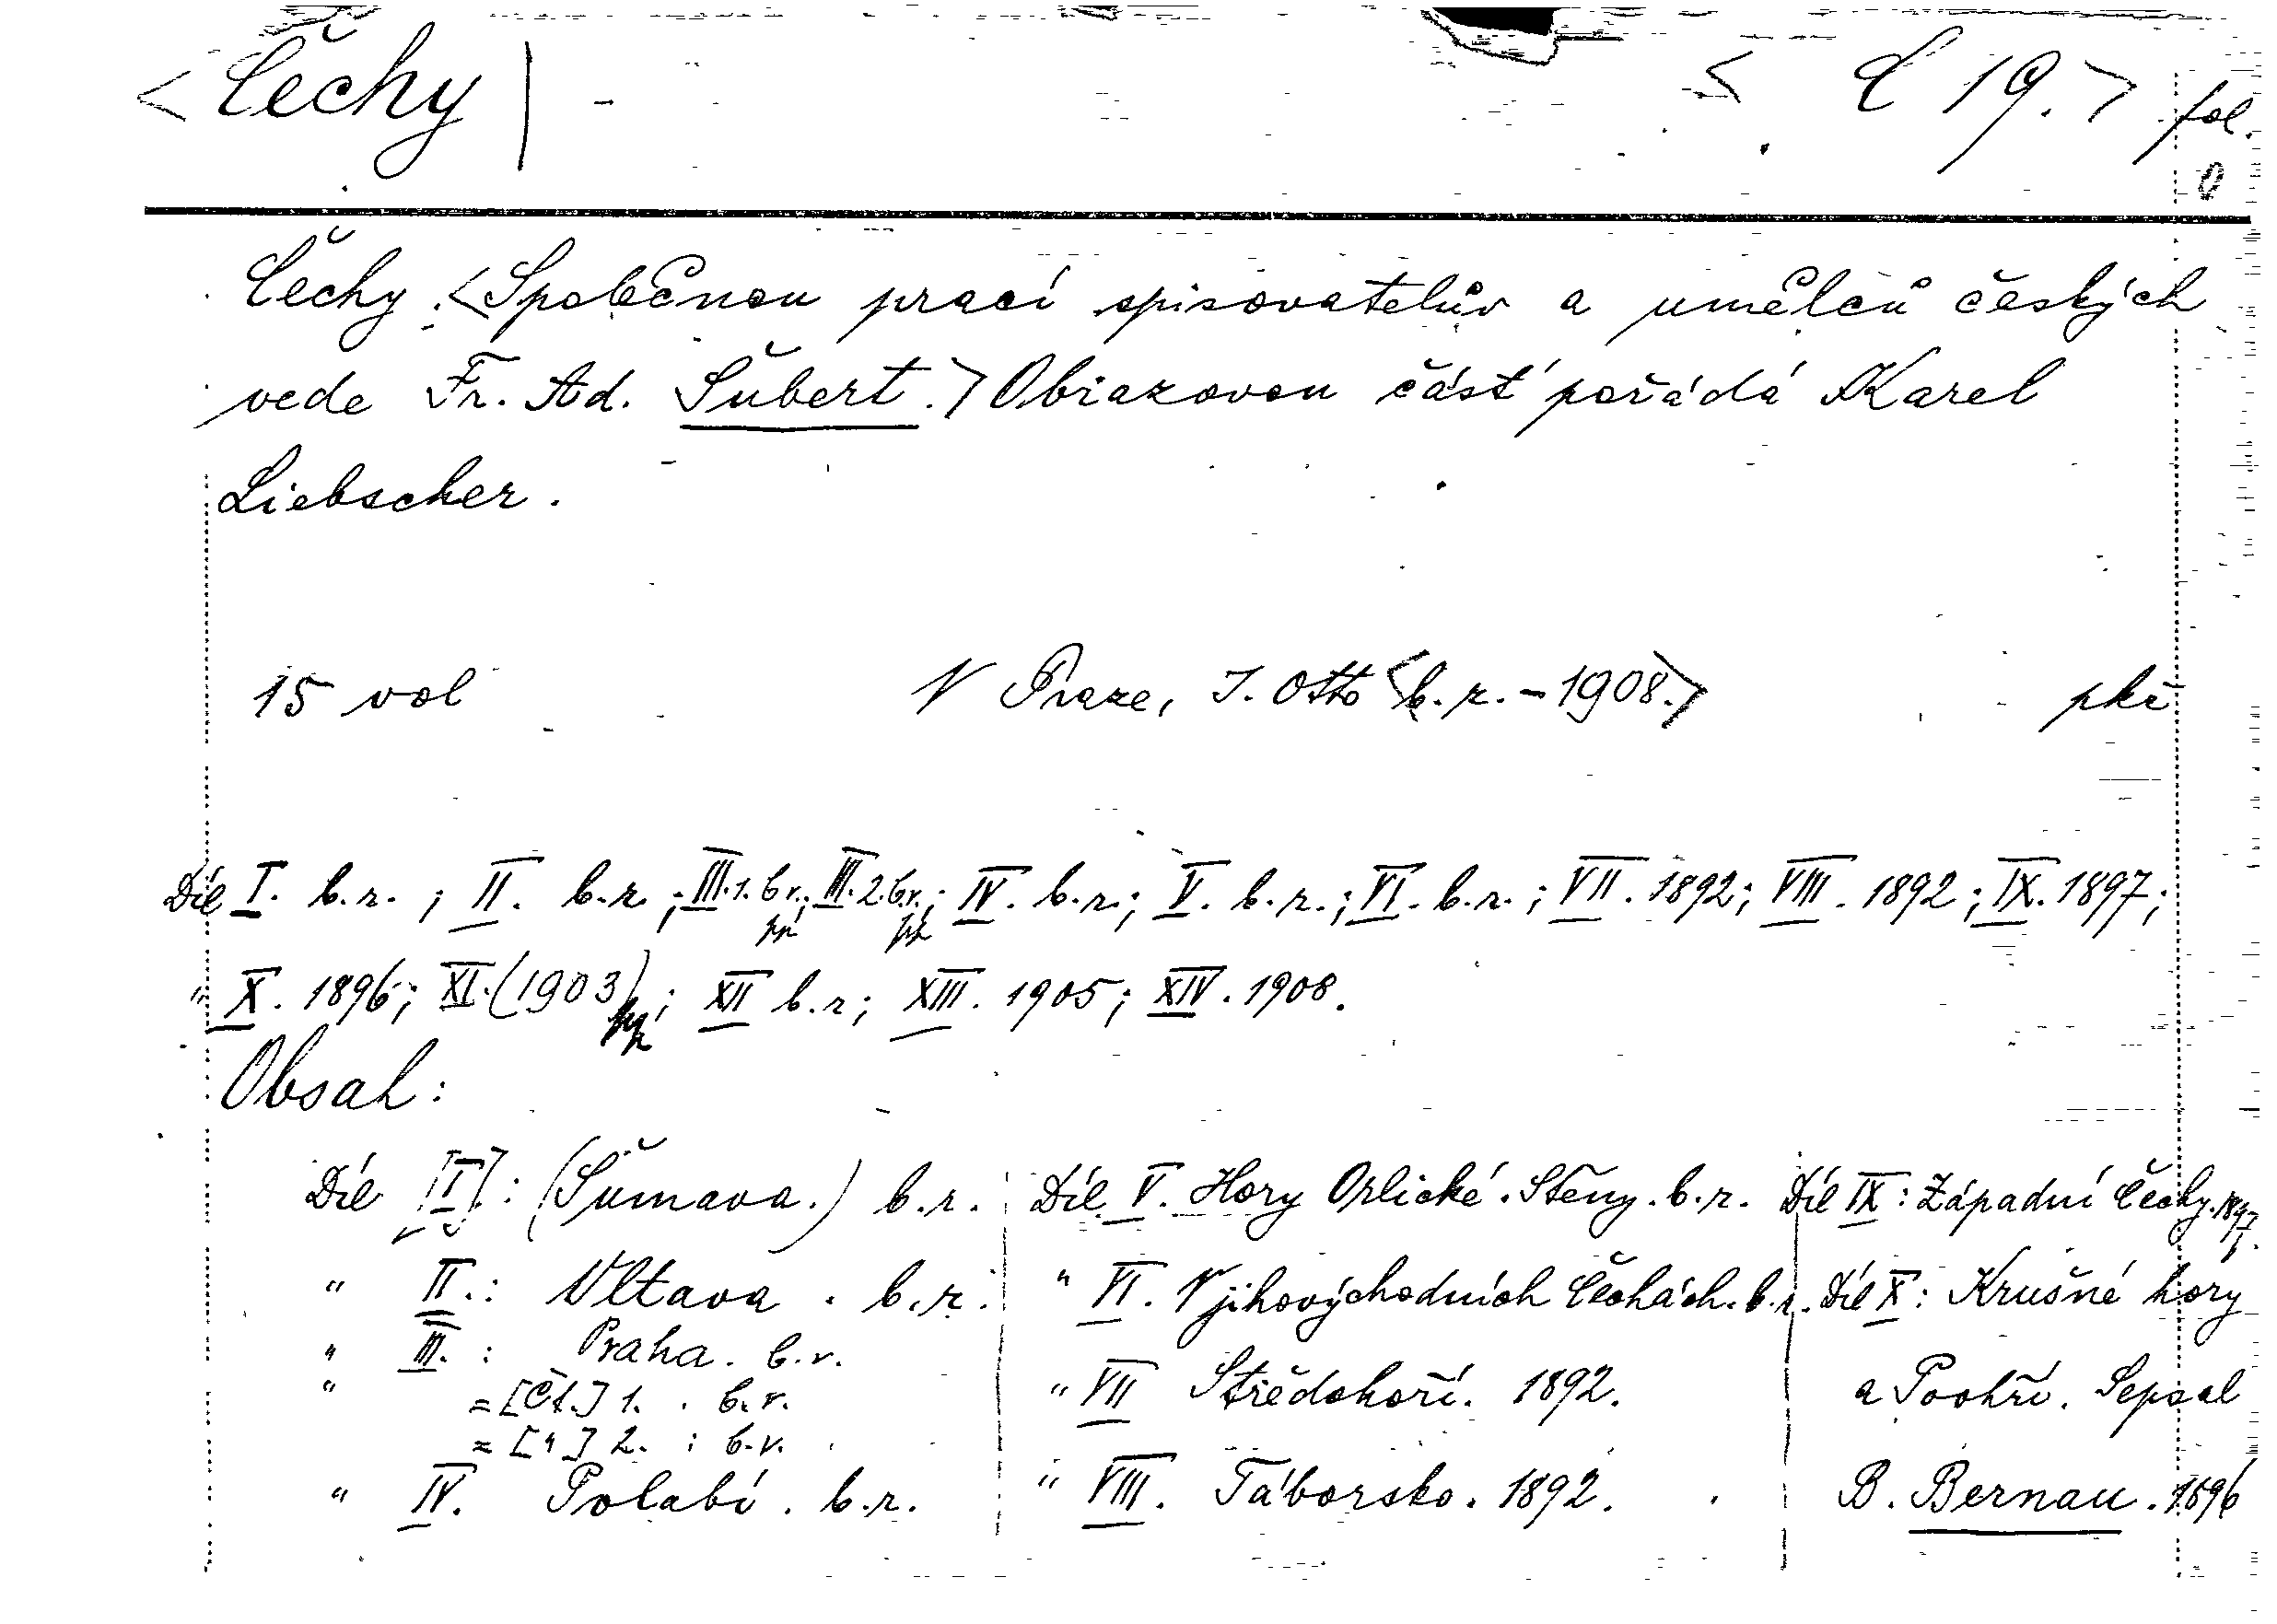 <Čechy |
< č 19.> fol.
Čechy: <Společnou prací spisovatelův a umělců českých
vede Fr. Ad. Šubert.> Obrazovou část pořádá Karel
Liebscher.
15 vol V Praze, J. Otto <b.r. - 1908.>
Díl I. b.r.; II. b.r.; III.1. b.r.; III.2. b.r.; IV. b.r.; V. b.r.; VI. b.r.; VII. 1892; VIII. 1892; IX. 1897;
" X. 1896; XI. (1903); XII b.r; XIII. 1905; XIV. 1908.
Obsah:
Díl [I]: (Šumava.) b.r.
" II.: Vltava. b.r.
" III.: Praha. b.r.
" = [Čt.] 1. b.r.
= ["] 2. : b.r.
" IV. Polabí. b.r.
Díl V. Hory Orlické. Stěny. b.r.
" VI. V jihovýchodních Čechách. b.r.
" VII Středohoří. 1892.
" VIII. Táborsko. 1892.
Díl IX: Západní Čechy. 1897.
Díl X: Krušné hory
a Poohří. Sepsal
B. Bernau. 1896